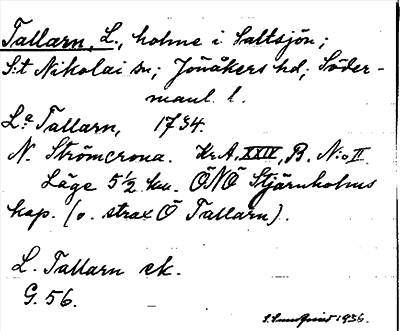 Tallarn, L., holme i Saltsjön;
S:t Nikolai sn; Jönåkers hd; Söder-
manl. l.
La Tallarn, 1734.
N. Strömcrona. Kr.A. XXIV, B. N:o II.
Läge 5 1/2 km. ÖNÖ Stjärnholms
kap. (o. strax Ö Tallarn).
L. Tallarn ek.
G. 56.
1936.